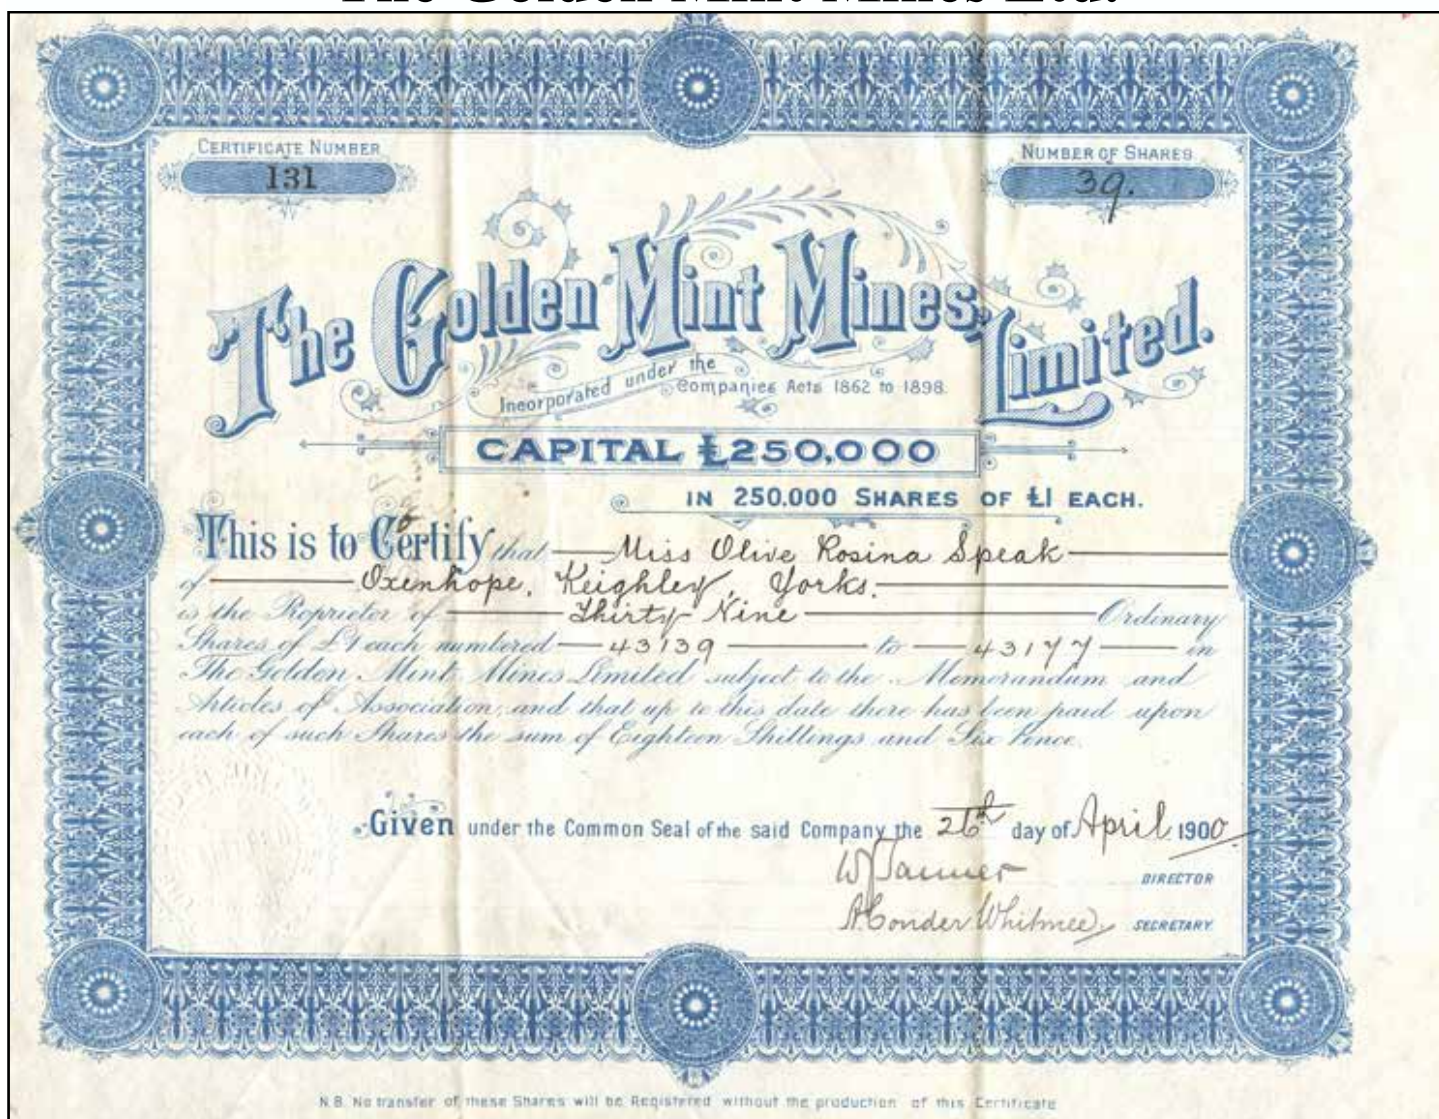 The Golden Mint Mines Ltd.
CERTIFICATE NUMBER
131
NUMBER OF SHARES
39.
The Golden Mint Mines, Limited.
Incorporated under the Companies Acts 1862 to 1898.
CAPITAL £250,000
IN 250,000 SHARES OF £1 EACH.
This is to Certify that Miss Olive Rosina Speak
of Oxenhope, Keighley, Yorks.
is the Proprietor of Thirty Nine Ordinary
Shares of £1 each numbered 43139 to 43177 in
The Golden Mint Mines Limited subject to the Memorandum and
Articles of Association, and that up to this date there has been paid upon
each of such Shares the sum of Eighteen Shillings and Six Pence.
Given under the Common Seal of the said Company the 26th day of April 1900
W Tanner DIRECTOR
A Conder Whitmee SECRETARY
N.B. No transfer of these Shares will be Registered without the production of this Certificate